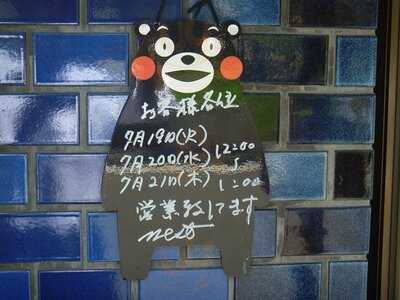 お客様各位
7月19日(火)
7月20日(水) 12:00
〜
7月21日(木) 1:00
営業致してます